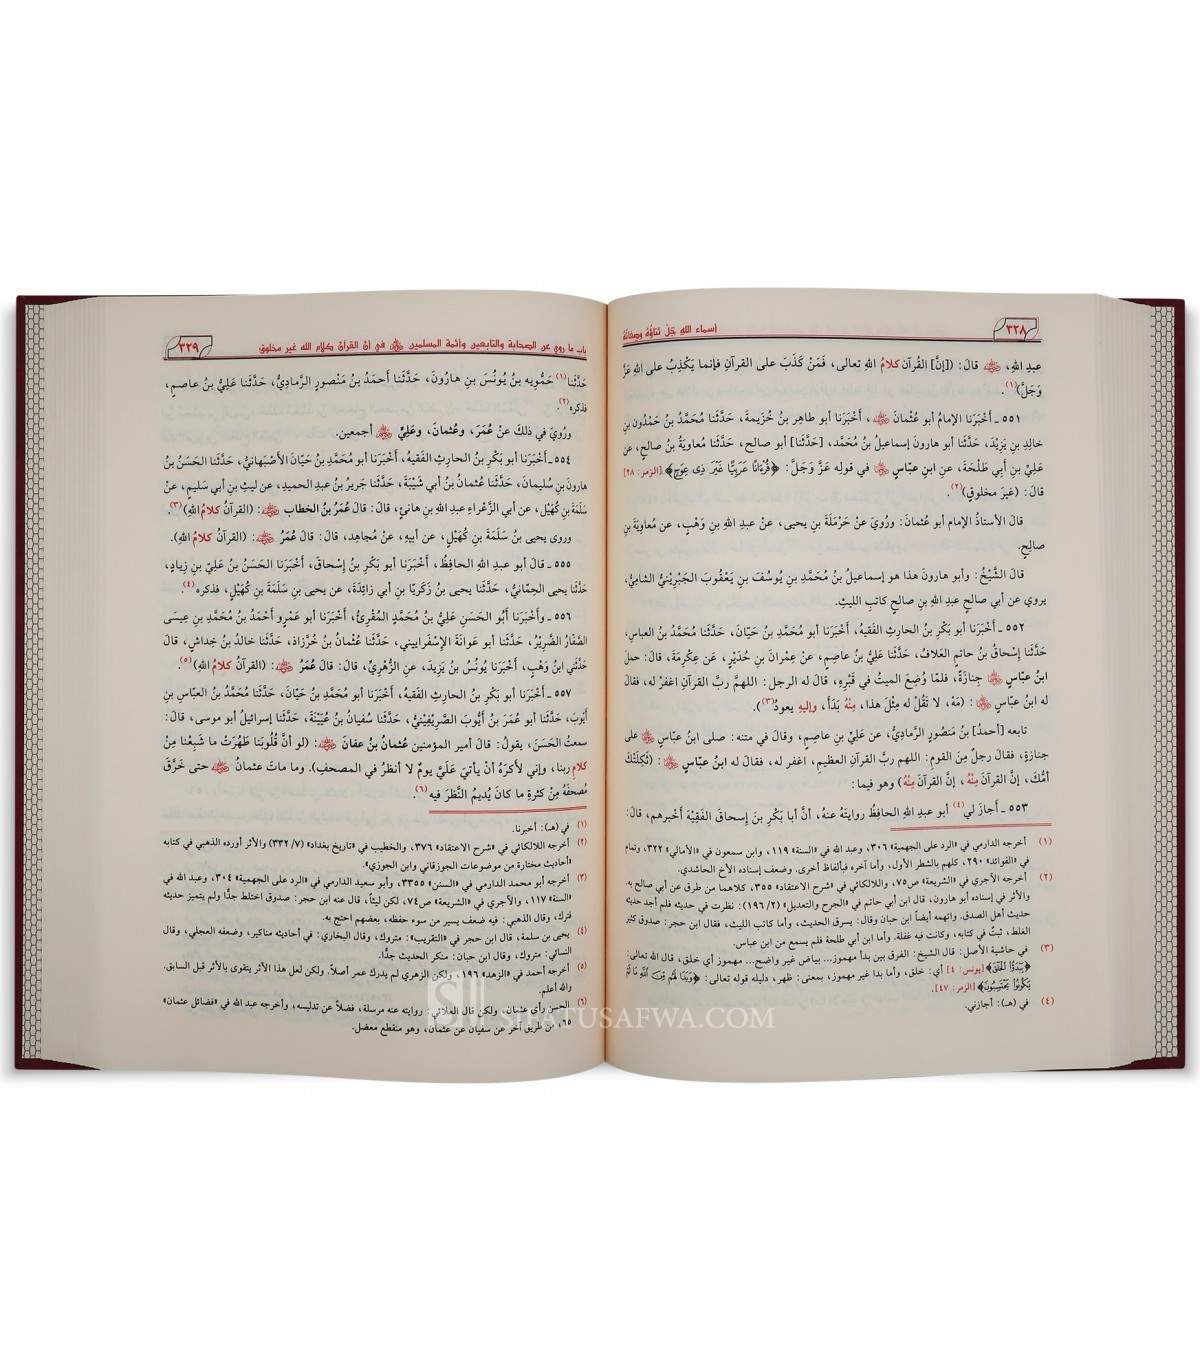 ٣٢٨
أسماء الله جل ثناؤه وصفاته
عبدِ اللهِ، ﷺ قالَ: ([إنَّ] القُرآن كلامُ اللهِ تعالى، فَمَنْ كَذَبَ على القرآنِ فإنما يَكْذِبُ على اللهِ عَزَّ
وَجَلَّ)(١).
٥٥١ ـ أَخْبَرَنا الإمامُ أبو عُثْمانَ، أَخْبَرَنا أبو طاهرِ بنُ خُزَيمةَ، حَدَّثَنا مُحَمَّدُ بنُ حَمْدُون بنِ
خالدِ بنِ يَزِيْدَ، حَدَّثَنا أبو هارونَ إسماعيلُ بنُ مُحَمَّد، [حَدَّثَنا] أبو صالح، حَدَّثَنا مُعاويَةُ بنُ صالحٍ، عن
عَلِيِّ بنِ أَبي طَلْحَةَ، عن ابنِ عبَّاسٍ في قولِه عَزَّ وَجَلَّ: ﴿قُرْءَانًا عَرَبِيًّا غَيْرَ ذِى عِوَجٍ﴾ [الزمر: ٢٨]
قالَ: (غيرَ مخلوقٍ)(٢).
قالَ الأستاذُ الإمام أبو عُثمانَ: ورُويَ عنْ حَرْمَلَةَ بنِ يحيى، عنْ عبدِ اللهِ بنِ وَهْبٍ، عن مُعاويَةَ بنِ
صالحٍ.
قالَ الشَّيْخُ: وأبو هارونَ هذا هو إسماعيلُ بنُ مُحَمَّدِ بنِ يُوسُفَ بنِ يَعْقوبَ الجَبْرِيْنيُّ الشاميُّ،
يروي عن أبي صالحٍ عبدِ اللهِ بنِ صالحٍ كاتبِ الليثِ.
٥٥٢ ـ أَخْبَرَنا أبو بَكْرِ بنُ الحارثِ الفَقيهُ، أَخْبَرَنا أبو مُحَمَّدِ بنُ حَيّانَ، حَدَّثَنا مُحَمَّدُ بنُ العباسِ،
حَدَّثَنا إسْحاقُ بنُ حاتمٍ العَلافُ، حَدَّثَنا عَلِيُّ بنُ عاصمٍ، عنْ عِمْرانَ بنِ حُدَيْرٍ، عَن عِكْرِمَةَ، قالَ: حملَ
ابنُ عبَّاسٍ جِنازَةً، فلمّا وُضِعَ الميتُ في قَبْرِهِ، قالَ له الرجلُ: اللهمَّ ربَّ القرآنِ اغفرْ له، فقالَ
له ابنُ عبَّاسٍ: (مَهْ، لا تَقُلْ له مِثْلَ هذا، مِنْهُ بَدَأَ، وإليهِ يعودُ)(٣).
تابعه [أحمدُ] بنُ مَنصُورٍ الرَّماديُّ، عن عَلِيِّ بنِ عاصمٍ، وقالَ في متنه: صلى ابنُ عبَّاسٍ على
جنازةٍ، فقالَ رجلٌ مِنَ القومِ: اللهم ربَّ القرآنِ العظيمِ، اغفر له، فقالَ له ابنُ عبَّاسٍ: (ثَكِلَتْكَ
أمُّكَ، إنَّ القرآنَ مِنْهُ، إنَّ القرآنَ مِنْهُ) وهو فيما:
٥٥٣ ـ أَجازَ لي(٤) أبو عبدِ اللهِ الحافِظُ روايتَهُ عنهُ، أنَّ أبا بَكْرِ بنَ إسحاقَ الفَقِيْهَ أخْبرهم، قالَ:
(١) أخرجه الدارمي في «الرد على الجهمية» ٣٠٦، وعبد الله في «السنة» ١١٩، وابن سمعون في «الأمالي» ٣٢٢، وتمام
في «الفوائد» ٢٩٠، كلهم بالشطر الأول، وأما آخره فبألفاظ أخرى. وضعف إسناده الأخ الحاشدي.
(٢) أخرجه الآجري في «الشريعة» ص٧٥، واللالكائي في «شرح الاعتقاد» ٣٥٥، كلاهما من طرق عن أبي صالح به.
والأثر في إسناده أبو هارون، قال ابن أبي حاتم في «الجرح والتعديل» (١٩٦/٢): نظرت في حديثه فلم أجد حديثه
حديث أهل الصدق. واتهمه أيضاً ابن حبان وقال: يسرق الحديث، وأما كاتب الليث، فقال ابن حجر: صدوق كثير
الغلط، ثبتٌ في كتابه، وكانت فيه غفلة. وأما ابن أبي طلحة فلم يسمع من ابن عباس.
(٣) في حاشية الأصل: قال الشيخ: الفرق بين بدأ مهموز... بياض غير واضح... مهموز أي خلق، قال الله تعالى:
﴿يَبْدَؤُا الْخَلْقَ﴾ [يونس: ٤] أي: خلق، وأما بدا غير مهموز، بمعنى: ظهر، دليله قوله تعالى: ﴿وَبَدَا لَهُم مِّنَ اللَّهِ مَا لَمْ
يَكُونُوا يَحْتَسِبُونَ﴾ [الزمر: ٤٧].
(٤) في (هـ): أجازني.
باب ما روي عن الصحابة والتابعين وأئمة المسلمين في أن القرآن كلام الله غير مخلوق
٣٢٩
حَدَّثَنا(١) حَمُّويه بنُ يُونُسَ بنِ هارُونَ، حَدَّثَنا أَحمَدُ بنُ مَنْصورٍ الرَّماديُّ، حَدَّثَنا عَلِيُّ بنُ عاصمٍ،
فذكره(٢).
ورُويَ في ذلكَ عنْ عُمَرَ، وعُثمانَ، وعَلِيٍّ أجمعين.
٥٥٤ ـ أَخْبَرَنا أبو بَكْرِ بنُ الحارِثِ الفَقيهُ، أَخْبَرَنا أبو مُحَمَّدِ بنُ حَيّانَ الأصْبَهانيُّ، حَدَّثَنا الحَسَنُ بنُ
هارونَ بنِ سُليمانَ، حَدَّثَنا عُثمانُ بنُ أبي شَيْبَةَ، حَدَّثَنا جَريرُ بنُ عبدِ الحميدِ، عن ليثِ بنِ أبي سَليمٍ، عنْ
سَلَمَةَ بنِ كُهَيْلٍ، عن أبي الزَّعْراءِ عبدِ اللهِ بنِ هانئٍ، قالَ: قالَ عُمَرُ بنُ الخطاب: (القرآنُ كلامُ اللهِ)(٣).
وروى يحيى بنُ سَلَمَةَ بنِ كُهَيْلٍ، عن أبيهِ، عنْ مُجاهدٍ، قالَ: قالَ عُمَرُ: (القرآنُ كلامُ اللهِ).
٥٥٥ ـ قالَ أبو عبدِ اللهِ الحافِظُ، أَخْبَرَنا أبو بَكْرِ بنُ إسْحاقَ، أَخْبَرَنا الحَسَنُ بنُ عَلِيِّ بنِ زيادٍ،
حَدَّثَنا يحيى الحِمّانيُّ، حَدَّثَنا يحيى بنُ زَكَرِيّا بنِ أبي زائدَةَ، عن يحيى بنِ سَلَمَةَ بنِ كُهَيْلٍ، فذكره(٤).
٥٥٦ ـ وأَخْبَرَنا أَبُو الحَسَنِ عَلِيُّ بنُ مُحَمَّدٍ المُقْرِئُ، أَخْبَرَنا أبو عَمْرٍو أَحْمَدُ بنُ مُحَمَّدِ بنِ عِيسَى
الصَّفّارُ الضَّرِيْرُ، حَدَّثَنا أبو عَوانَةَ الإسْفَراييني، حَدَّثَنا عُثْمانُ بنُ خُرَّزاذَ، حَدَّثَنا خالدُ بنُ خِداشٍ، قالَ
حَدَّثَني ابنُ وَهْبٍ، أَخْبَرَنا يُونُسُ بنُ يَزِيدَ، عنِ الزُّهْرِيِّ، قالَ: قالَ عُمَرُ: (القرآنُ كلامُ اللهِ)(٥).
٥٥٧ ـ أَخْبَرَنا أبو بَكْرِ بنُ الحارثِ الفَقيهُ، أَخْبَرَنا أبو مُحَمَّدِ بنُ حَيّانَ، حَدَّثَنا مُحَمَّدُ بنُ العبّاسِ بنِ
أيّوبَ، حَدَّثَنا أبو عُمَرَ بنُ أيّوبَ الصَّرِيْفِيْنيُّ، حَدَّثَنا سُفيانُ بنُ عُيَيْنَةَ، حَدَّثَنا إسرائيلُ أبو موسى، قالَ:
سمعتُ الحَسَنَ، يقولُ: قالَ أميرُ المؤمنينَ عُثمانُ بنُ عفانَ: (لو أنَّ قُلُوبَنا طَهُرَتْ ما شَبِعْنا مِنْ
كلامِ ربِّنا، وإني لأكرَهُ أنْ يأتيَ عَلَيَّ يومٌ لا أنظرُ في المصحفِ). وما ماتَ عثمانُ حتى خَرَّقَ
مُصْحَفَهُ مِنْ كثرةِ ما كانَ يُديمُ النَّظَرَ فيه(٦).
(١) في (هـ): أخبرنا.
(٢) أخرجه اللالكائي في «شرح الاعتقاد» ٣٧٦، والخطيب في «تاريخ بغداد» (٣٣٢/٧) والأثر أورده الذهبي في كتابه
«أحاديث مختارة من موضوعات الجوزقاني وابن الجوزي».
(٣) أخرجه أبو محمد الدارمي في «السنن» ٣٣٥٥، وأبو سعيد الدارمي في «الرد على الجهمية» ٣٠٤، وعبد الله في
«السنة» ١١٧، والآجري في «الشريعة» ص٧٤، لكن ليثاً، قال عنه ابن حجر: صدوق اختلط جدًّا ولم يتميز حديثه
فترك، وقال الذهبي: فيه ضعف يسير من سوء حفظه، بعضهم احتج به.
(٤) يحيى بن سلمة، قال ابن حجر في «التقريب»: متروك، وقال البخاري: في أحاديثه مناكير، وضعفه العجلي، وقال
النسائي: متروك، وقال ابن حبان: منكر الحديث جدًّا.
(٥) أخرجه أحمد في «الزهد» ١٩٦، ولكن الزهري لم يدرك عمر أصلاً. ولكن لعل هذا الأثر يتقوى بالأثر قبل السابق.
والله أعلم.
(٦) الحسن رأى عثمان، ولكن قال العلائي: روايته عنه مرسلة، فضلاً عن تدليسه، وأخرجه عبد الله في «فضائل عثمان»
٦٥، من طريق آخر عن سفيان عن عثمان، وهو منقطع معضل.
SIFATUSAFWA.COM